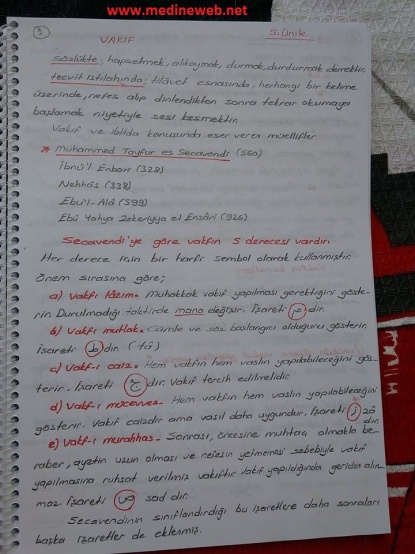 www.medineweb.net
3
VAKIF
5. Ünite
Sözlükte; hapsetmek, alıkoymak, durmak, durdurmak demektir.
Tecvit ıstılahında; tilâvet esnasında, herhangi bir kelime
üzerinde, nefes alıp dinlendikten sonra tekrar okumaya
başlamak niyetiyle sesi kesmektir.
Vakıf ve ibtida konusunda eser veren müellifler
* Muhammed Tayfur es Secavendi (560)
İbnü'l Enbari (328)
Nehhâs (338)
Ebu'l-Alâ (599)
Ebû Yahya Zekeriyya el Ensâri (926)
Secavendi'ye göre vakfın 5 derecesi vardır.
Her derece için bir harfi sembol olarak kullanmıştır.
Önem sırasına göre;
a) Vakf-ı lâzım: Muhakkak vakıf yapılması gerektiğini göste-
rir. Durulmadığı taktirde mana değişir. İşareti م dir.
b) Vakf-ı mutlak: Cümle ve söz başlangıcı olduğunu gösterir.
İşareti ط dır. (tâ)
c) Vakf-ı caiz: Hem vakfın hem vaslın yapılabileceğini gös-
terir. İşareti ج dir. Vakıf tercih edilmelidir.
d) Vakf-ı mücevvez- Hem vakfın hem vaslın yapılabileceğini
gösterir. Vakıf caizdir ama vasıl daha uygundur. İşareti ز zâ
dır.
e) Vakf-ı murahhas- Sonrası, öncesine muhtaç olmakla be-
raber, ayetin uzun olması ve nefesin yetmemesi sebebiyle vakıf
yapılmasına ruhsat verilmiş vakıftır. Vakıf yapıldığında geriden alın-
maz. İşareti ص sad dır.
Secavendinin sınıflandırdığı bu işaretlere daha sonraları
başka işaretler de eklenmiş.